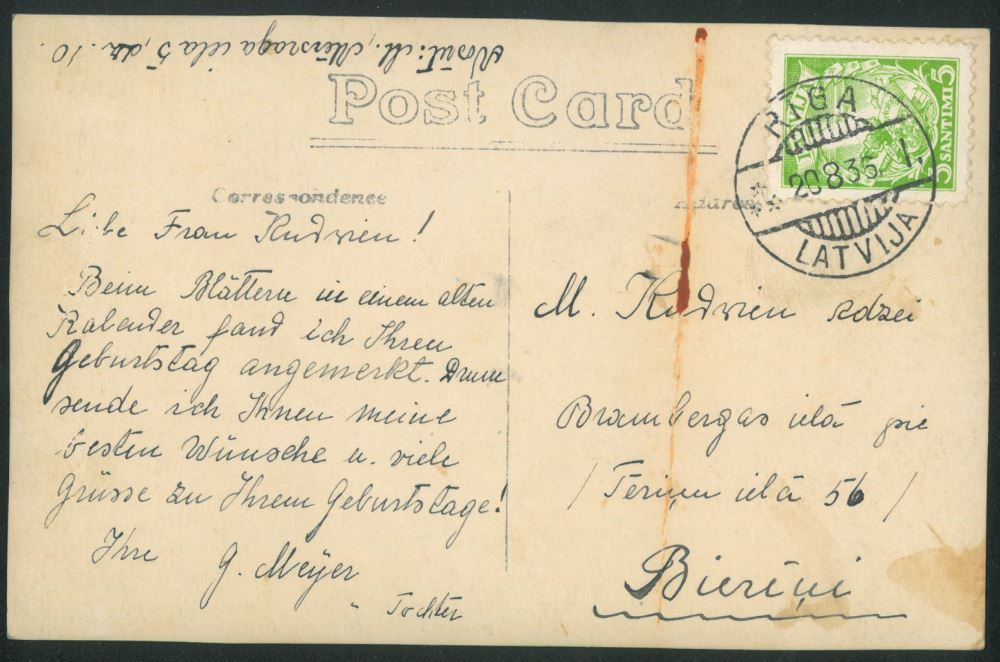 Nosūt: M., Mērsraga iela 5, dz. 10.
Post Card
Correspondence
Address
RIGA
20 8 35 I.
LATVIJA
5 SANTIMI 5
Liebe Frau Kudwien!
Beim Blättern in einem alten
Kalender fand ich Ihren
Geburtstag angemerkt. Drum
sende ich Ihnen meine
besten Wünsche u. viele
Grüsse zu Ihrem Geburtstage!
Ihre G. Meyer
" Tochter
M. Kudwien kdzei
Brambergas ielā pie
/ Tēriņu ielā 56 /
Bieriņi